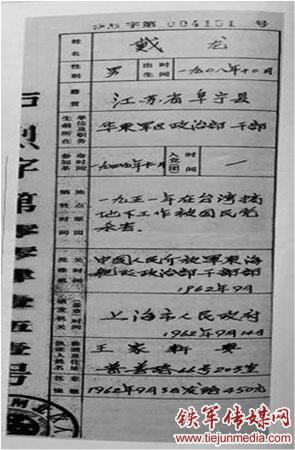 字第 004151 号
姓名 戴龙
性别 男 出生时间 一九一八年十月
籍贯 江苏省阜宁县
生前所在单位及职务 华东军区政治部 干部
参加革命时间 一九四四年十月 入党团时间 一
牺牲时间地点原因 一九五一年在台湾搞
地下工作被国民党
杀害。
批准机关时间 中国人民解放军东海
舰队政治部干部部
1962年9月
上海市人民政府
1962年9月14日
王家 妻
66号203室
1962年9月5日发给450元
烈字第零零肆壹伍壹号
铁军传媒网
www.tiejunmedia.com